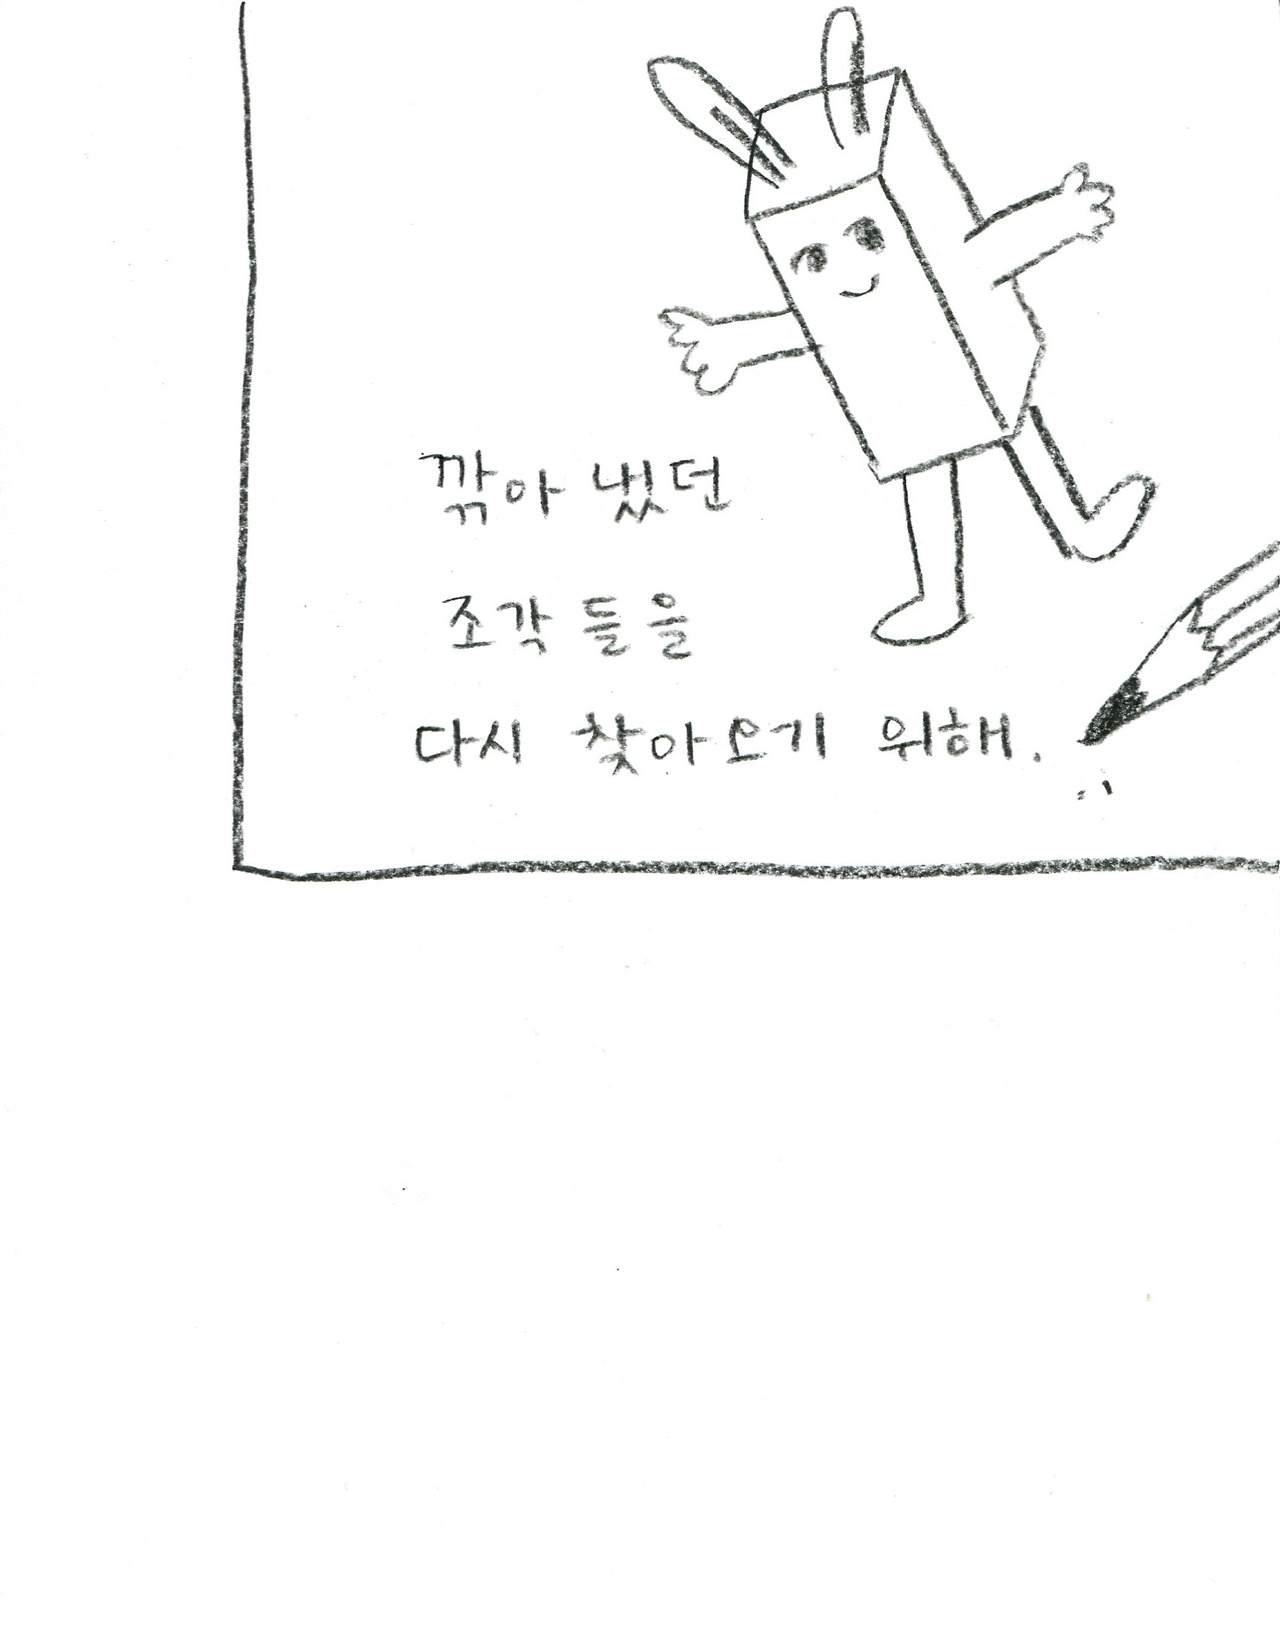 깎아 냈던
조각들을
다시 찾아오기 위해.